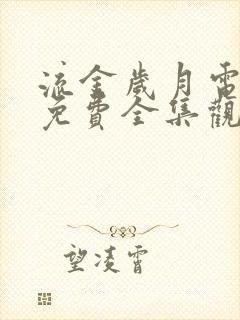 流金歲月電
免費全集觀
望凌霄